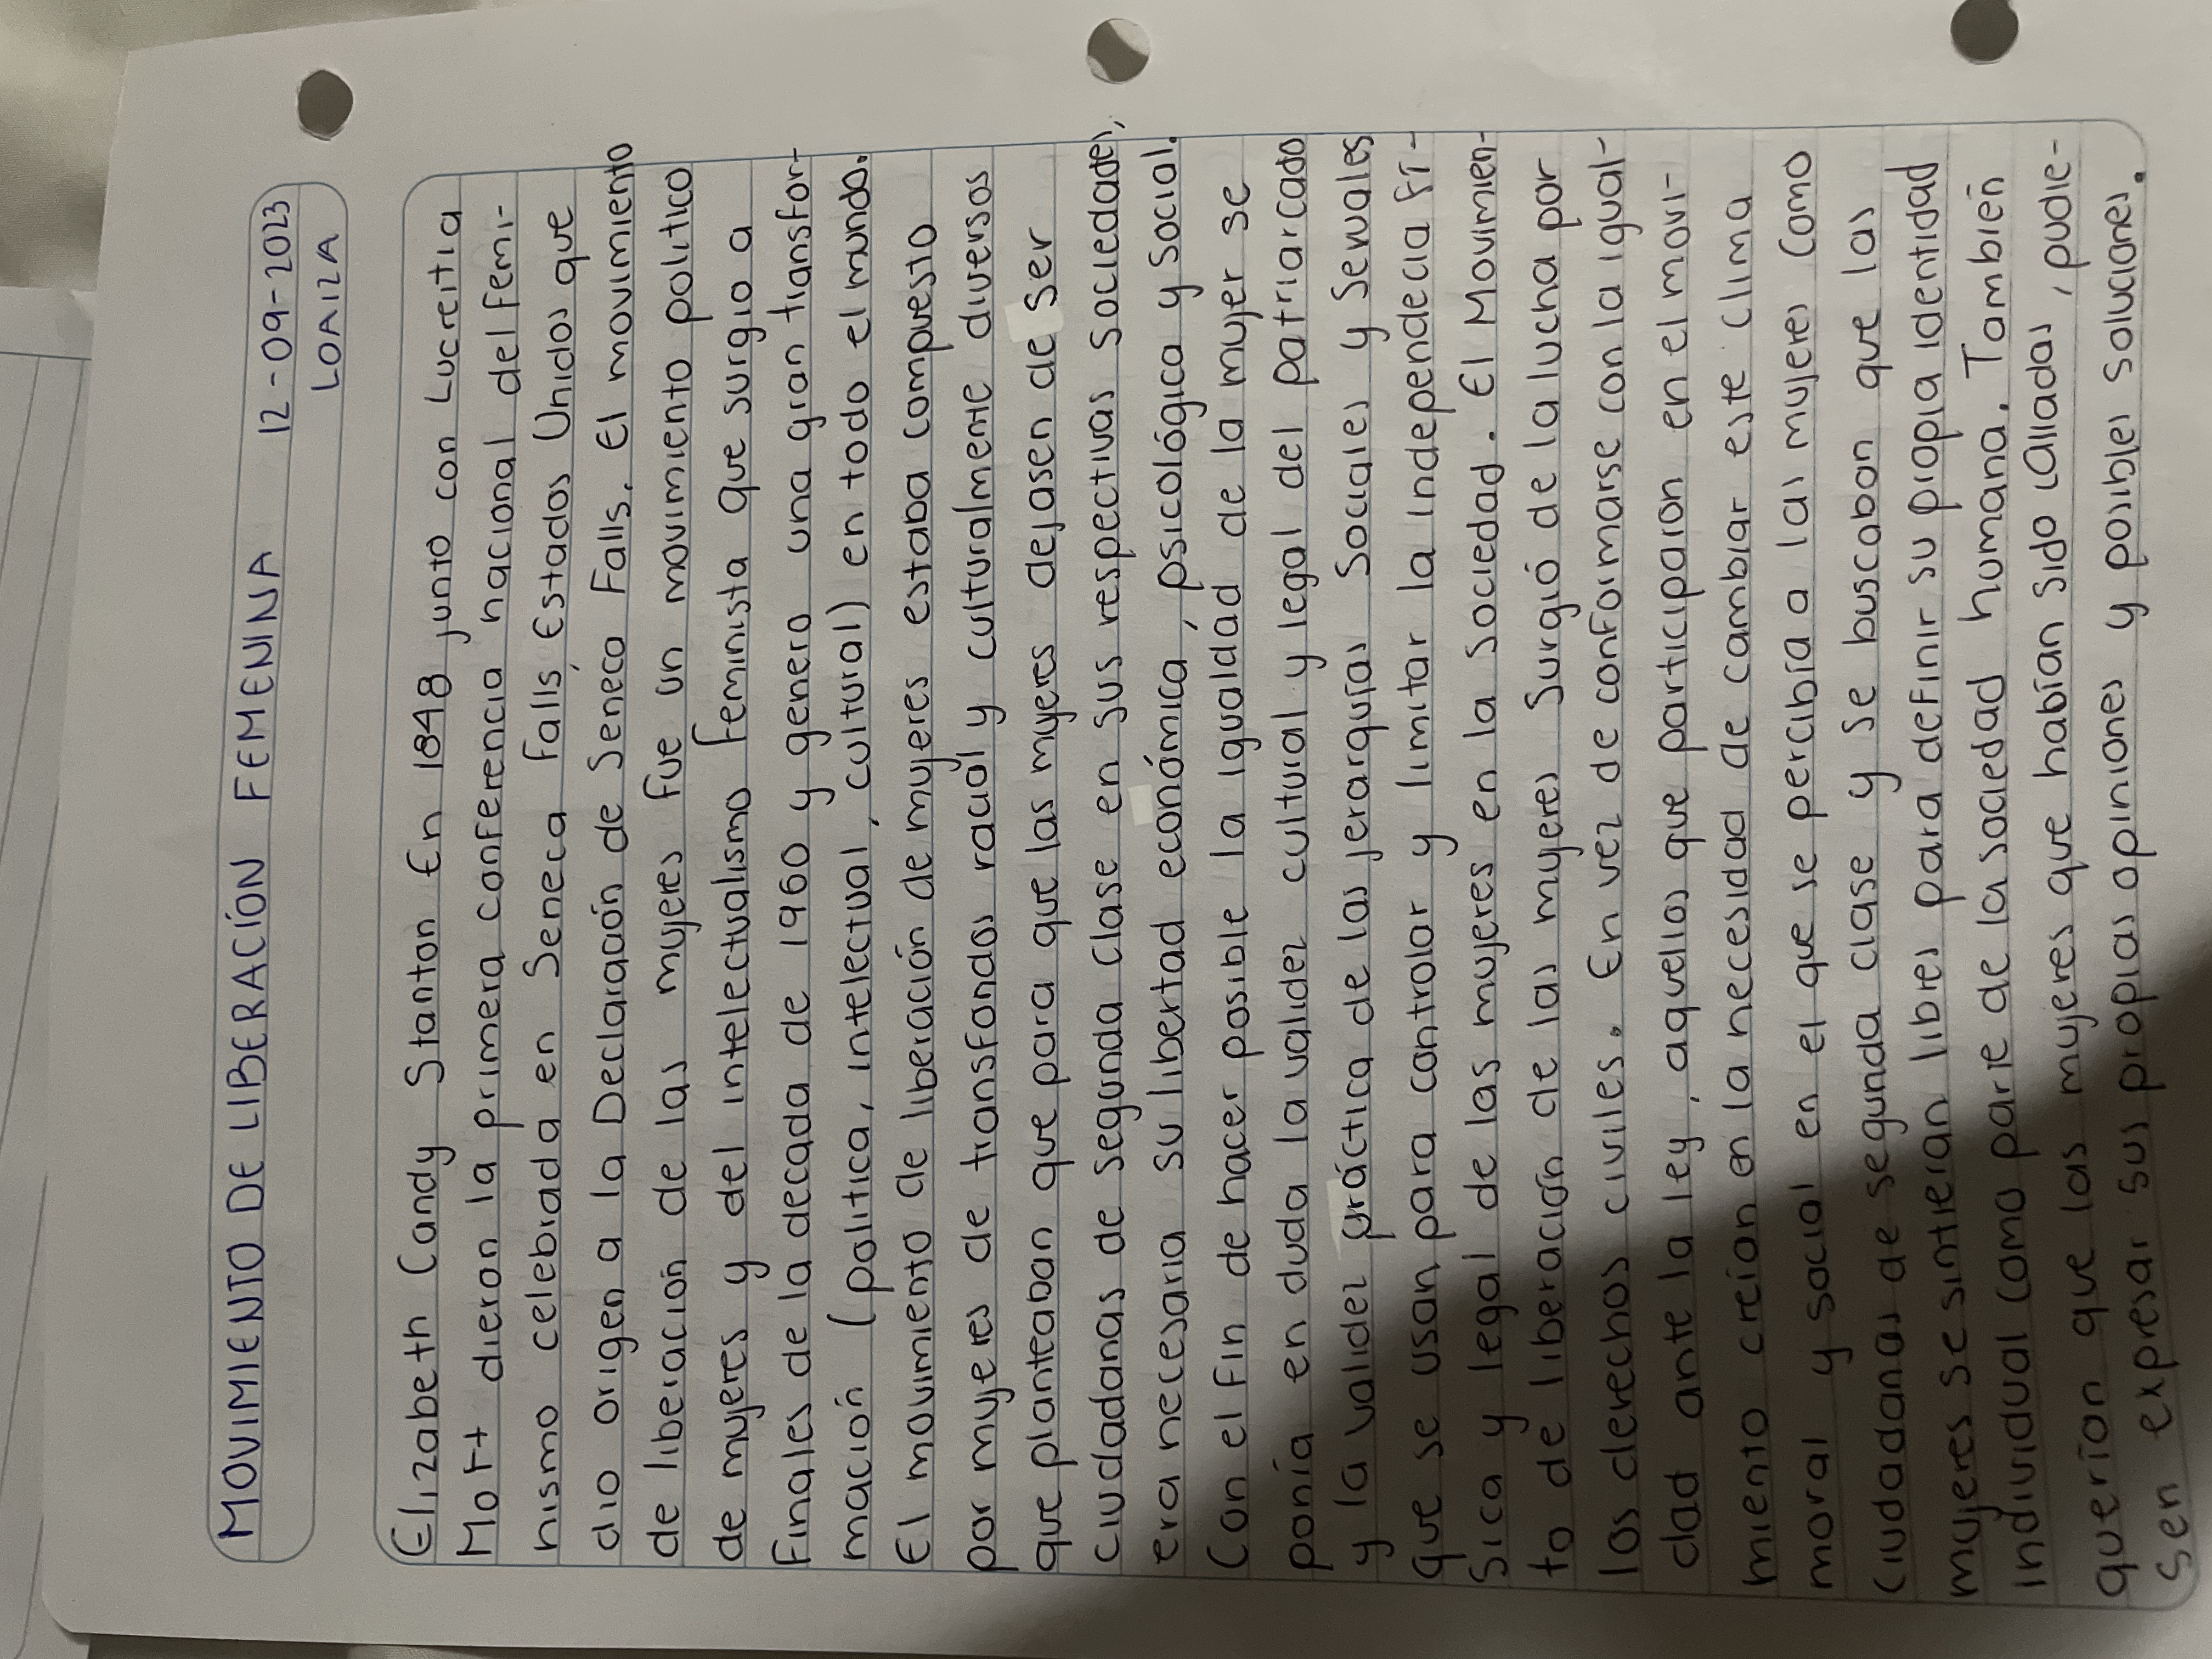 MOVIMIENTO DE LIBERACIÓN FEMENINA 12-09-2023
LOAIZA
Elizabeth Candy Stanton En 1848 junto con Lucretia
Mott dieron la primera conferencia nacional del femi-
nismo celebrada en Seneca Falls, Estados Unidos que
dio origen a la Declaración de Seneca Falls. El movimiento
de liberación de las mujeres fue un movimiento politico
de mujeres y del intelectualismo feminista que surgio a
finales de la decada de 1960 y genero una gran transfor-
mación (politica, intelectual, cultural) en todo el mundo.
El movimiento de liberación de mujeres estaba compuesto
por mujeres de transfondos racial y culturalmente diversos
que planteaban que para que las mujeres dejasen de ser
ciudadanas de segunda clase en sus respectivas sociedades,
era necesaria su libertad económica, psicológica y social.
Con el fin de hacer posible la igualdad de la mujer se
ponía en duda la validez cultural y legal del patriarcado
y la validez práctica de las jerarquías Sociales y Sexuales
que se usan para controlar y limitar la independecia fí-
sica y legal de las mujeres en la sociedad. El Movimien-
to de liberación de las mujeres Surgió de la lucha por
los derechos civiles. En vez de conformarse con la igual-
dad ante la ley, aquellos que participaron en el movi-
miento creían en la necesidad de cambiar este clima
moral y social en el que se percibía a las mujeres como
ciudadanas de segunda clase y se buscabon que las
mujeres se sintieran libres para definir su propia identidad
individual como parte de la sociedad humana. También
querían que las mujeres que habían sido calladas, pudie-
sen expresar sus propias opiniones y posibles soluciones.